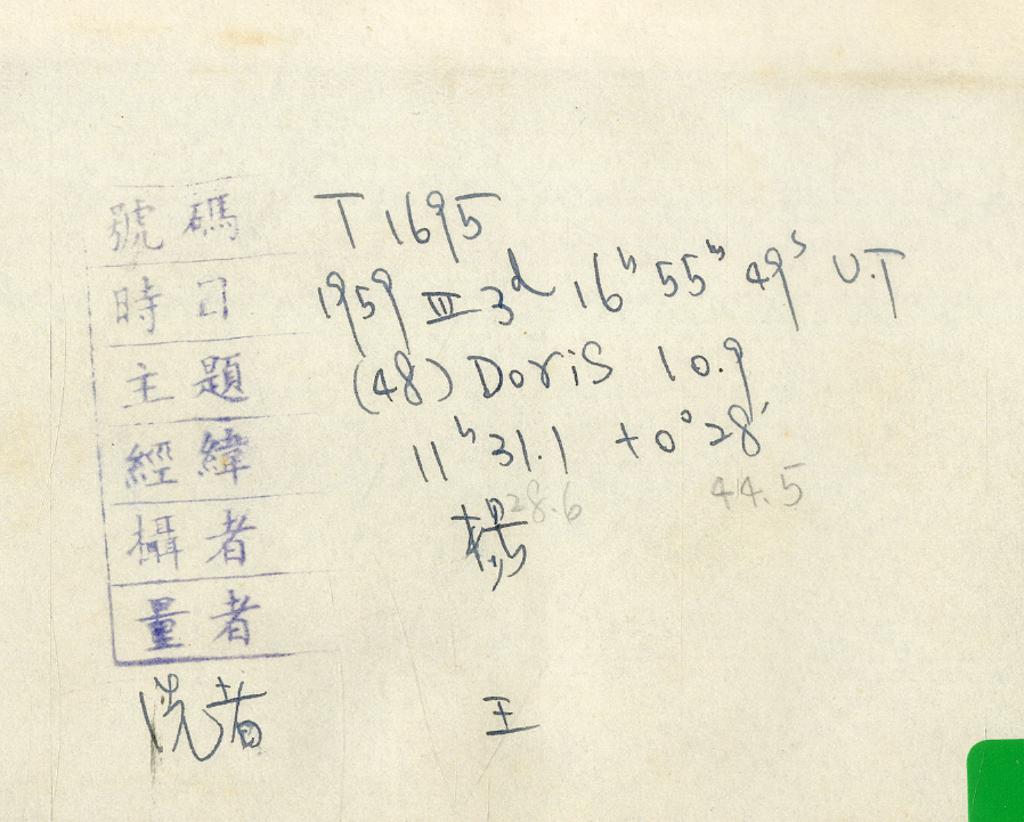 號碼 T 1695
時日 1959 III 3ᵈ 16ʰ 55ᵐ 49ˢ U.T
主題 (48) Doris 10.9
經緯 11ʰ 31.1 +0° 28′
28.6 44.5
攝者 楊
量者
洗者 王